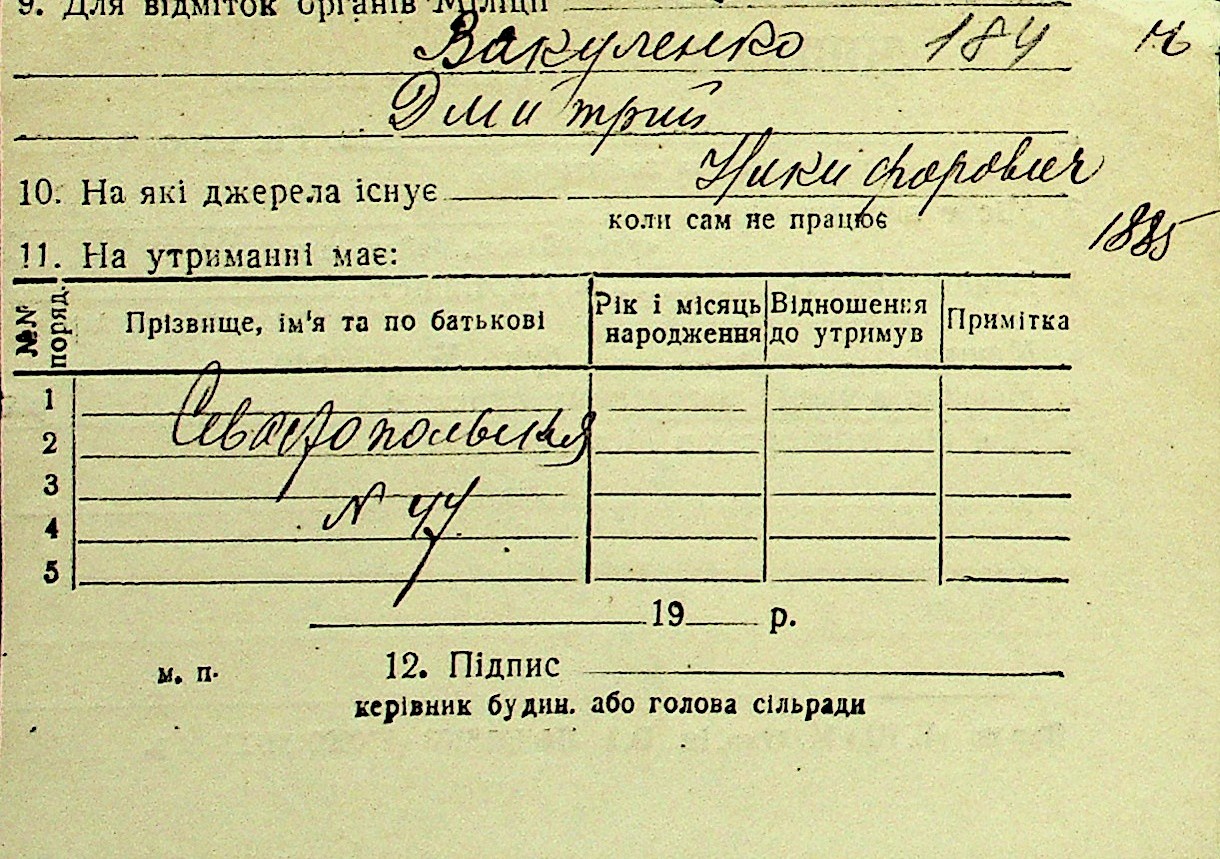 9. Для відміток органів Міліції
Вакуленко 184
Дмитрий
Никифорович
10. На які джерела існує
коли сам не працює
1885
11. На утриманні має:
№№ поряд.
Прізвище, ім'я та по батькові
Рік і місяць народження
Відношення до утримув
Примітка
1
2
Севастопольская
3
4
N 44
5
19 р.
м. п.
12. Підпис
керівник будин. або голова сільради